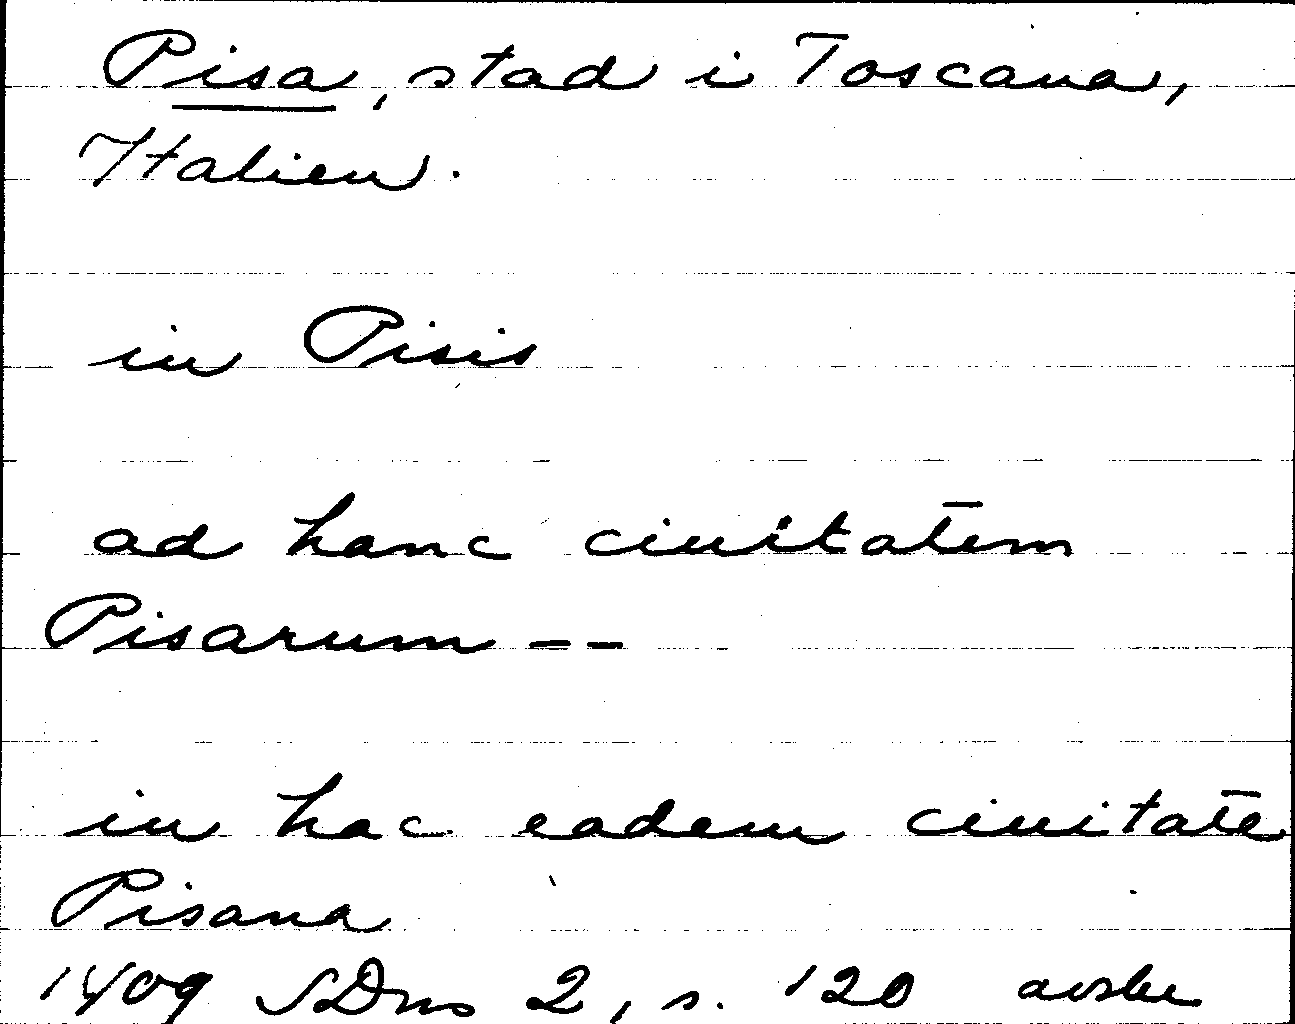 Pisa, stad i Toscana,
Italien.
in Pisis
ad hanc ciuitatem
Pisarum --
in hac eadem ciuitate
Pisana
1409 SDns 2, s. 120 avskr